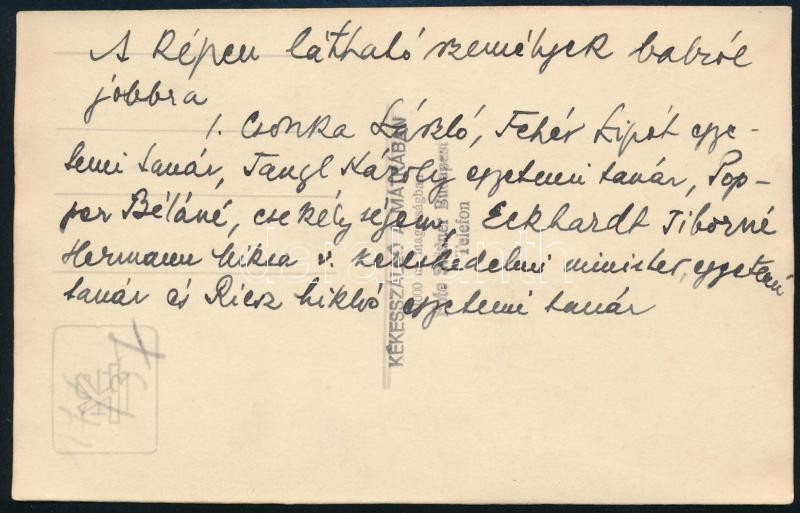 A képen látható személyek balról
jobbra
1. Csonka László, Fehér Lipót egye-
temi tanár, Tangl Károly egyetemi tanár, Pop-
per Béláné, csekélységem, Eckhardt Tiborné
Hermann Miksa v. kereskedelmi minister, egyetemi
tanár és Riesz Miklós egyetemi tanár
KÉKESSZÁLLÓ A MÁTRÁBAN
Budapest
Telefon
darabanth